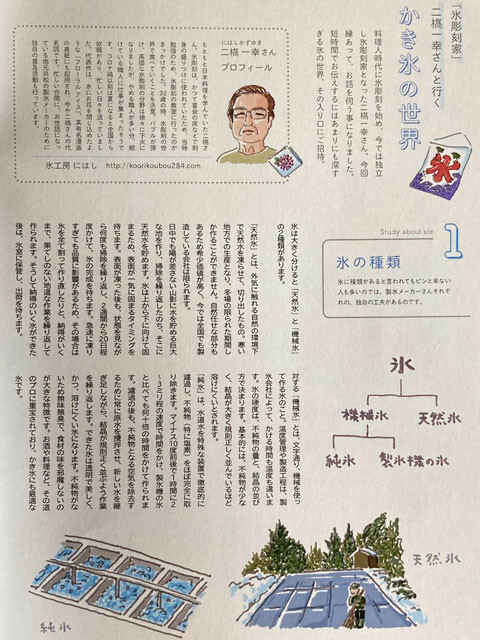 「氷彫刻家」
二橋一幸さんと行く
かき氷の世界
料理人時代に氷彫刻を始め、今では独立
し氷彫刻家となった二橋一幸さん。今回
縁あって、お話を伺う事になりました。
短時間でお伝えするにはあまりにも深す
ぎる氷の世界、その入り口にご招待。
氷
にはしかずゆき
二橋 一幸さん
プロフィール
もともと日本料理を学んでいた二橋さ
ん。氷彫刻は、かつて宴会の席などで刺
身の盛り付けに使われていたため、当時
勉強のため、氷彫刻の教室に行ったのが
きっかけでした。32歳の時、氷彫刻の世
氷工房 にはし http://koorikoubou284.com
1
Study about ice
氷の種類
氷に種類があると言われてもピンと来ない
人も多いのでは。製氷メーカーさんそれぞ
れの、独自の工夫があるのです。
氷は大きく分けると「天然氷」と「機械氷」
の2種類があります。
「天然氷」とは、外気に触れる自然の環境下
で天然水を凍らせて、切り出したもの。寒い
地方での生産となり、冬場の限られた期間し
か作ることができません。自然任せな部分も
あるため希少価値が高く、今では全国でも製
造している会社は限られます。
日中でも陽が差さない山影に水を貯める巨大
な池を作り、掃除を繰り返したのち、そこに
天然水を貯めます。氷は上から下に向けて固
まるため、表面が一気に固まるタイミングを
待ちます。表面が凍った後も、状態を見なが
ら何度も掃除を繰り返し、2週間から20日程
度かけて、氷の完成を待ちます。急速に凍り
すぎても品質に影響があるため、その場合は
氷を全て割って作り直したりと、納得がいく
まで、果てしのない地道な作業を繰り返して
作られます。そうして納得のいく氷ができた
後は、氷室に保管し、出荷を待ちます。
対する「機械氷」とは、文字通り、機械を使っ
て作る氷のこと。温度管理や製造工程は、製
氷会社によって、かける時間も温度も違いま
す。氷の硬度は、不純物の量と、結晶の並び
方で決まります。基本的には、不純物が少な
く、結晶が大きく規則正しく並んでいるほど
溶けにくいとされます。
「純氷」は、水道水を特殊な装置で徹底的に
濾過し、不純物（特に塩素）をほぼ完全に取
り除きます。マイナス10度前後で1時間に2
〜3ミリ程の速度で時間をかけ、製氷機の氷
と比べても何十倍の時間をかけて作られま
す。濾過の後も、不純物となる空気を除去す
るために常に原水を攪拌させ、新しい水を継
ぎ足しながら、結晶が規則正しく並ぶよう作業
を繰り返します。できた氷は透明で美しく、
かつ、溶けにくい氷になります。不純物がな
いため無味無臭で、食材の味を邪魔しないの
が大きな特徴です。お酒や料理など、その道
のプロに重宝されており、かき氷にも最適な
氷です。
氷
機械氷
天然氷
純氷
製氷機の氷
天然氷
純氷